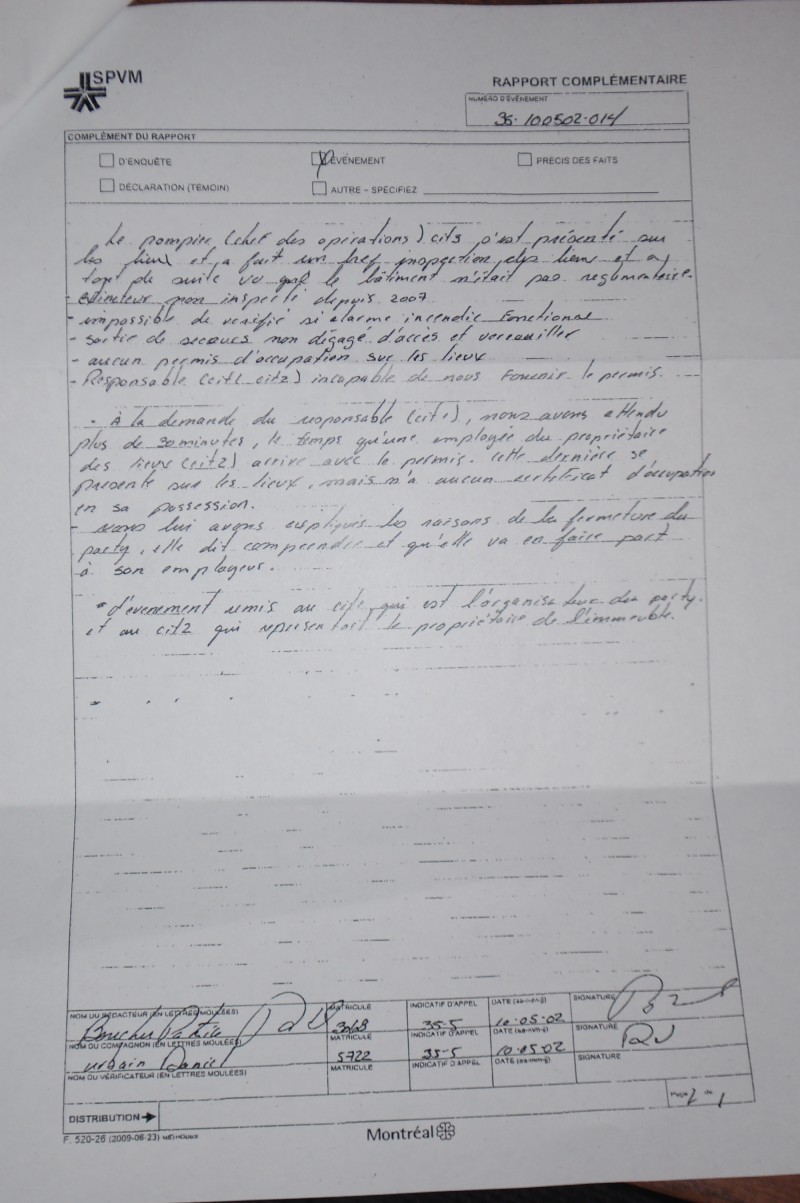 SPVM
RAPPORT COMPLÉMENTAIRE
NUMÉRO D'ÉVÉNEMENT
35-100502-014
COMPLÉMENT DU RAPPORT
D'ENQUÊTE
ÉVÉNEMENT
PRÉCIS DES FAITS
DÉCLARATION (TÉMOIN)
AUTRE – SPÉCIFIEZ
Le pompier (chef des opérations) cit3 s'est présenté sur
les lieux et a fait un bref inspection des lieux et a
tout de suite vu que le bâtiment n'était pas reglementaire.
- extincteur non inspecté depuis 2007
- impossible de vérifié si alarme incendie fonctionne
- sortie de secours non dégagé d'accès et verrouiller
- aucun permis d'occupation sur les lieux
- Responsable (cit1 cit2) incapable de nous fournir le permis.
- À la demande du responsable (cit1), nous avons attendu
plus de 30 minutes, le temps qu'une employée du propriétaire
des lieux (cit2) arrive avec le permis. Cette dernière se
présente sur les lieux, mais n'a aucun certificat d'occupation
en sa possession.
- nous lui avons expliqués les raisons de la fermeture du
party, elle dit comprendre et qu'elle va en faire part
à son employeur.
d'évenement remis au cit1, qui est l'organisateur du party.
et au cit2 qui représentait le propriétaire de l'immeuble.
NOM DU RÉDACTEUR (EN LETTRES MOULÉES)
MATRICULE
INDICATIF D'APPEL
DATE (aa-mm-jj)
SIGNATURE
Boucher
3068
35-5
10.05.02
NOM DU COMPAGNON (EN LETTRES MOULÉES)
MATRICULE
INDICATIF D'APPEL
DATE (aa-mm-jj)
SIGNATURE
urbain Daniel
5722
35-5
10.05.02
NOM DU VÉRIFICATEUR (EN LETTRES MOULÉES)
MATRICULE
INDICATIF D'APPEL
DATE (aa-mm-jj)
SIGNATURE
Page
de
DISTRIBUTION
F. 520-26 (2009-06-23)
Montréal